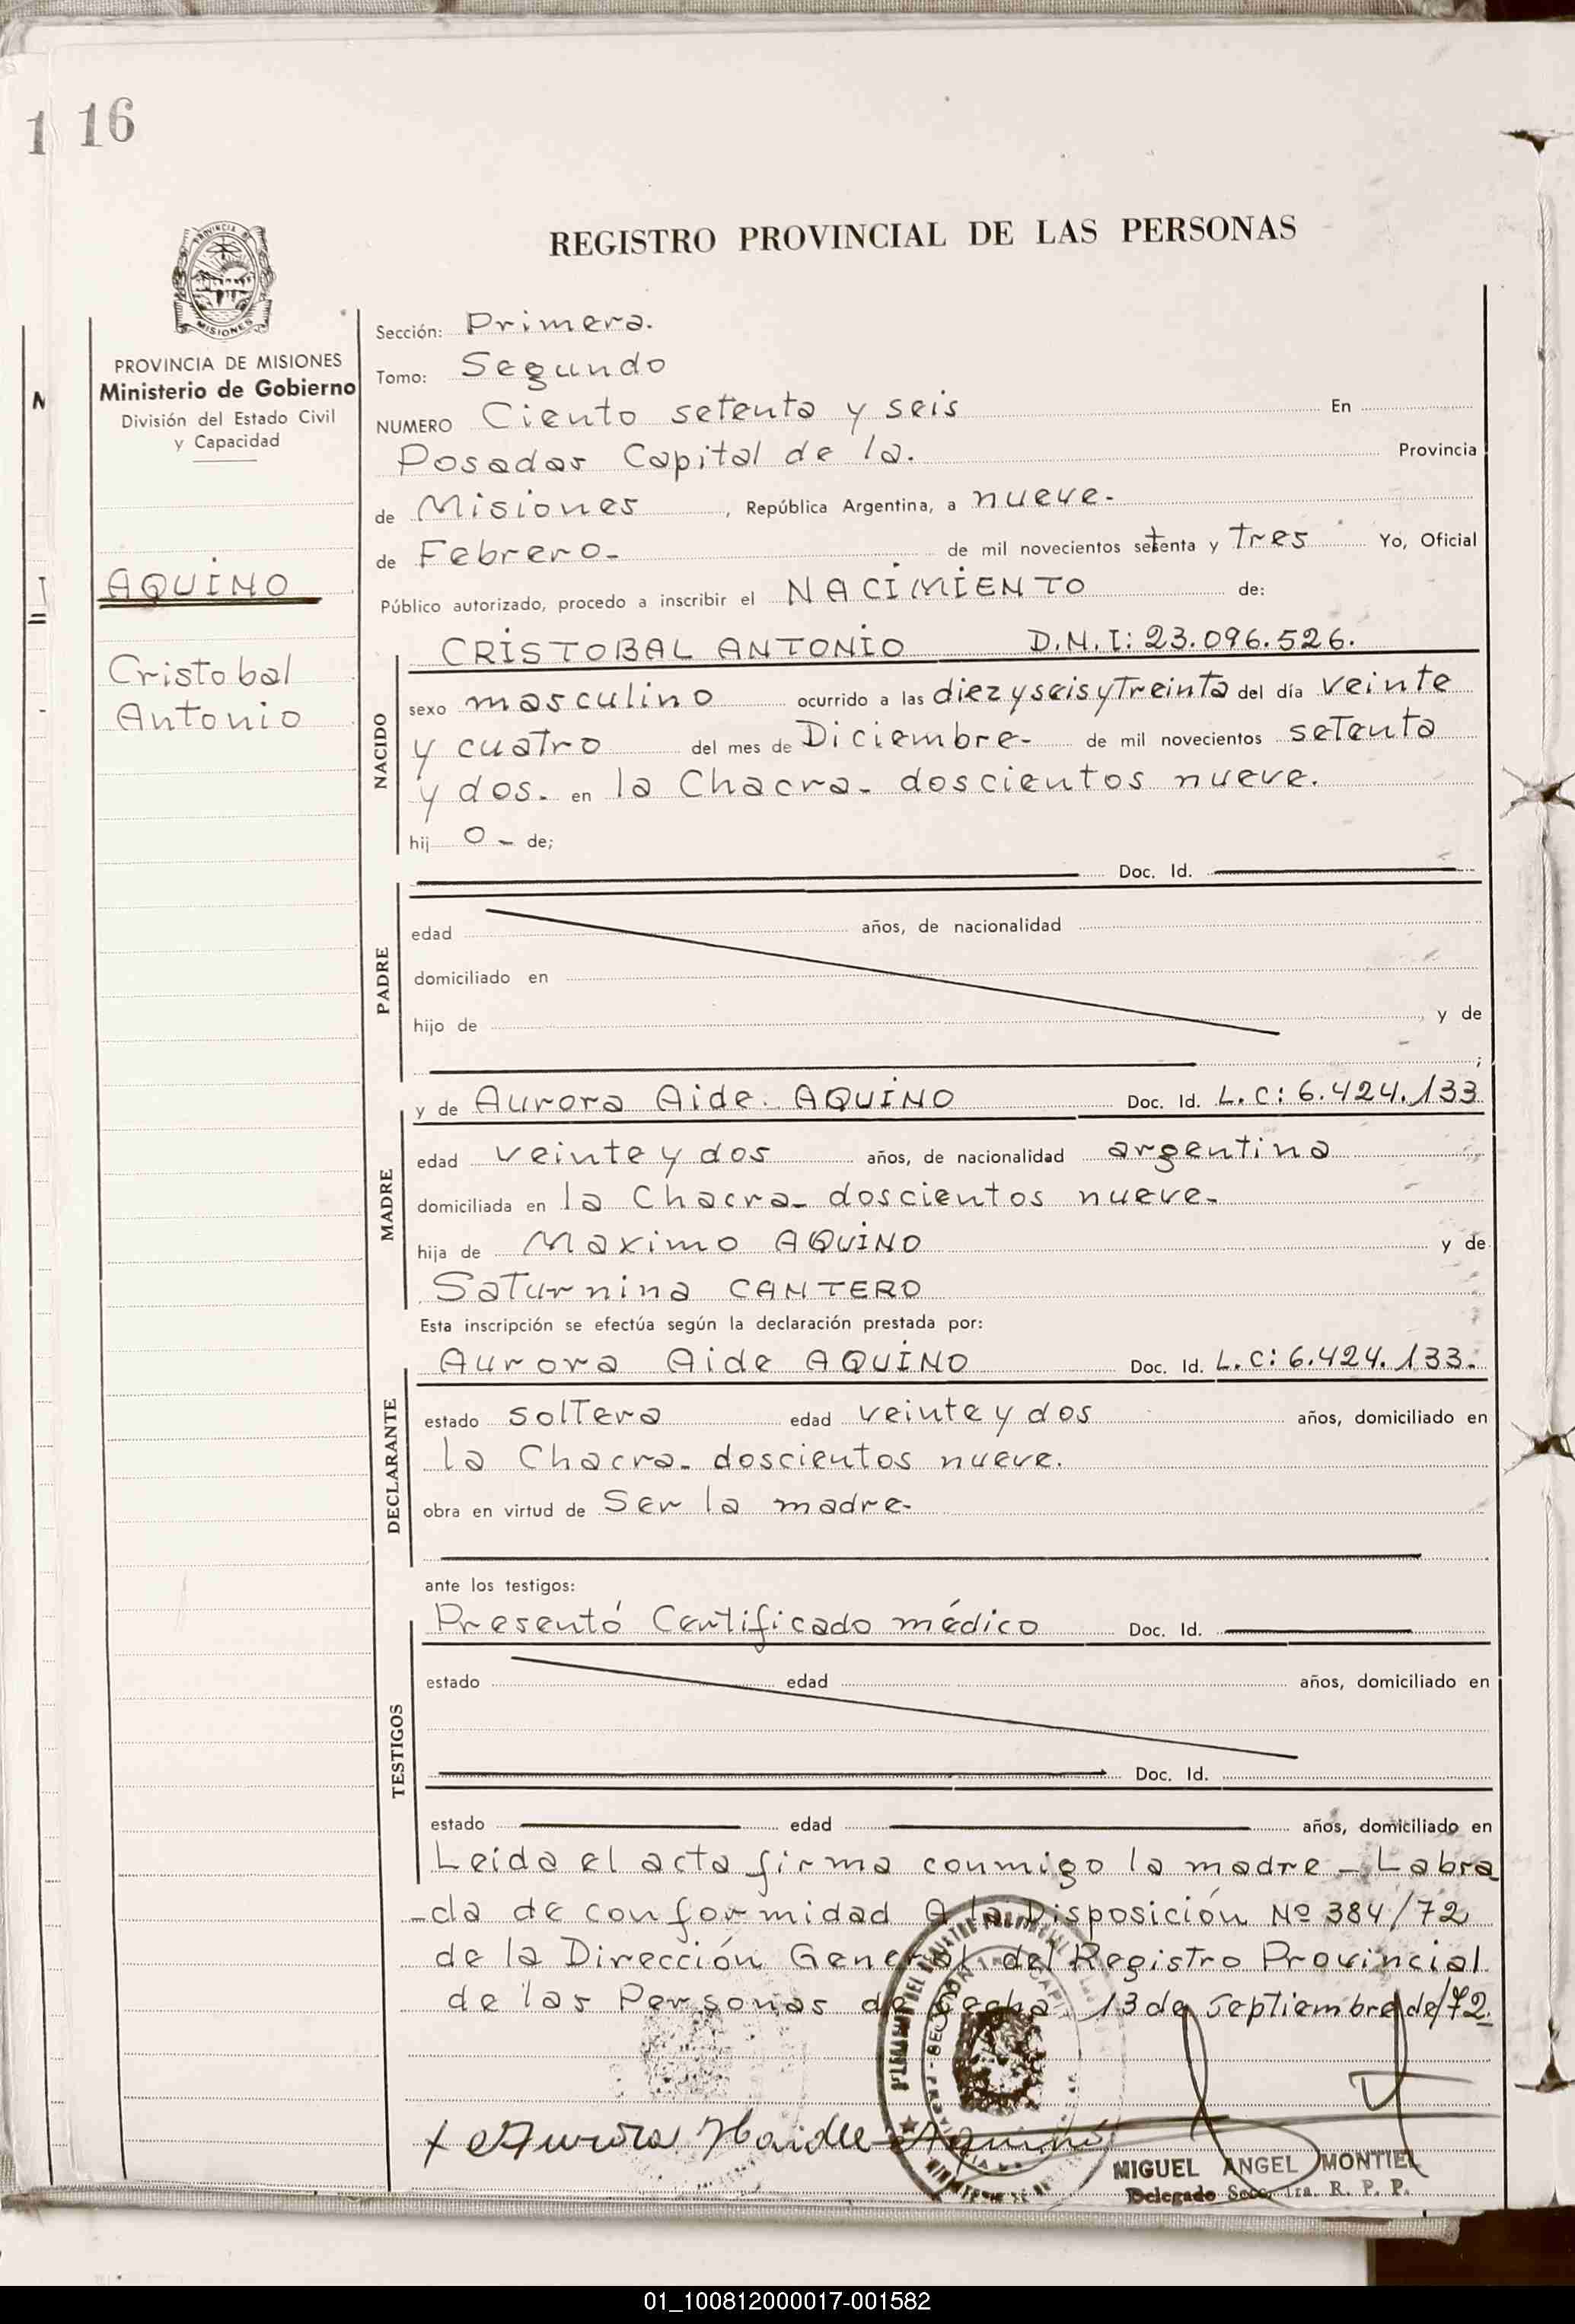 1 16
REGISTRO PROVINCIAL DE LAS PERSONAS
PROVINCIA DE MISIONES
Ministerio de Gobierno
División del Estado Civil
y Capacidad
AQUINO
Cristobal
Antonio
Sección: Primera.
Tomo: Segundo
NUMERO Ciento setenta y seis En
Posadas Capital de la. Provincia
de Misiones, República Argentina, a nueve-
de Febrero- de mil novecientos setenta y Tres Yo, Oficial
Público autorizado, procedo a inscribir el NACIMIENTO de:
CRISTOBAL ANTONIO D.N.I: 23.096.526.
NACIDO
sexo masculino ocurrido a las diez y seis y Treinta del día veinte
y cuatro del mes de Diciembre- de mil novecientos setenta
y dos- en la Chacra- doscientos nueve.
hij o- de;
Doc. Id.
PADRE
edad años, de nacionalidad
domiciliado en
hijo de , y de
;
MADRE
y de Aurora Aide. AQUINO Doc. Id. L.C: 6.424.133
edad veinte y dos años, de nacionalidad argentina
domiciliada en la Chacra- doscientos nueve-
hija de Maximo AQUINO y de
Saturnina CANTERO
Esta inscripción se efectúa según la declaración prestada por:
DECLARANTE
Aurora Aide AQUINO Doc. Id. L.C: 6.424.133.
estado solTera edad veinte y dos años, domiciliado en
la Chacra- doscientos nueve.
obra en virtud de Ser la madre-
ante los testigos:
TESTIGOS
Presentó Certificado médico Doc. Id.
estado edad años, domiciliado en
Doc. Id.
estado edad años, domiciliado en
Leida el acta firma conmigo la madre - Labra
-da de conformidad A la Disposición Nº 384/72
de la Dirección General del Registro Provincial
de las Personas de fecha 13 de Septiembre de/72.
x Aurora Haidee Aquino
MIGUEL ANGEL MONTIEL
Delegado Secc. 1ra. R. P. P.
01_100812000017-001582